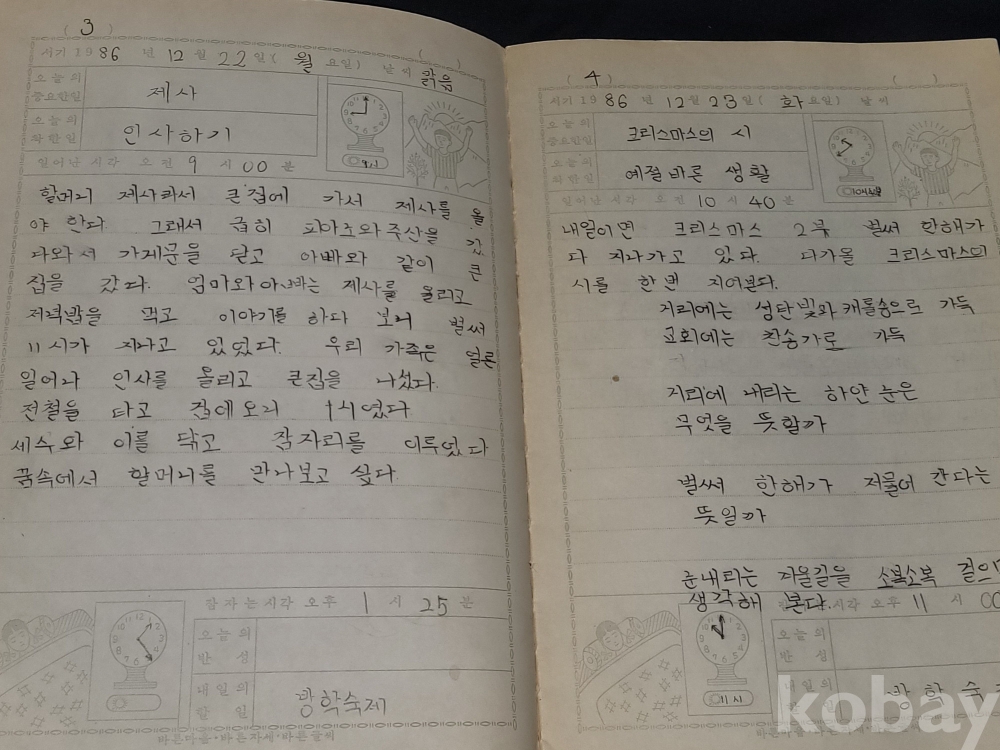 ( 3 )
서기 1986 년 12 월 22 일( 월 요일) 날씨 맑음
오늘의 중요한일 제사
오늘의 착한일 인사하기
일어난 시각 오전 9 시 00 분
9시
할머니 제사라서 큰집에 가서 제사를 올
야 한다 그래서 급히 피아노와 주산을 갔
다와서 가게문을 닫고 아빠와 같이 큰
집을 갔다. 엄마와아빠는 제사를 올리고
저녁밥을 먹고 이야기를 하다 보니 벌써
11시가 지나고 있었다. 우리 가족은 얼른
일어나 인사를 올리고 큰집을 나섰다.
전철을 타고 집에오니 1시였다
세수와 이를 닦고 잠자리를 이루었다
꿈속에서 할머니를 만나보고 싶다.
잠자는시각 오후 1 시 25 분
오늘의 반성
내일의 할일 방학숙제
바른마음·바른자세·바른글씨
( 4 )
서기 1986 년 12 월 23 일( 화 요일) 날씨
오늘의 중요한일 크리스마스의 시
오늘의 착한일 예절바른 생활
일어난시각 오전 10 시 40 분
내일이면 크리스마스 2부 벌써 한해가
다 지나가고 있다. 다가올 크리스마스의
시를 한번 지어본다.
거리에는 성탄빛과 캐롤송으로 가득
교회에는 찬송가로 가득
거리에 내리는 하얀 눈은
무엇을 뜻할까
벌써 한해가 저물어 간다는
뜻일까
눈내리는 겨울길을 소복소복 걸으
생각해 본다.
시각 오후 11 시 00
11시
오늘의 반성
내일의 할일 방학숙
바른마음·바른자세·바른글씨
kobay